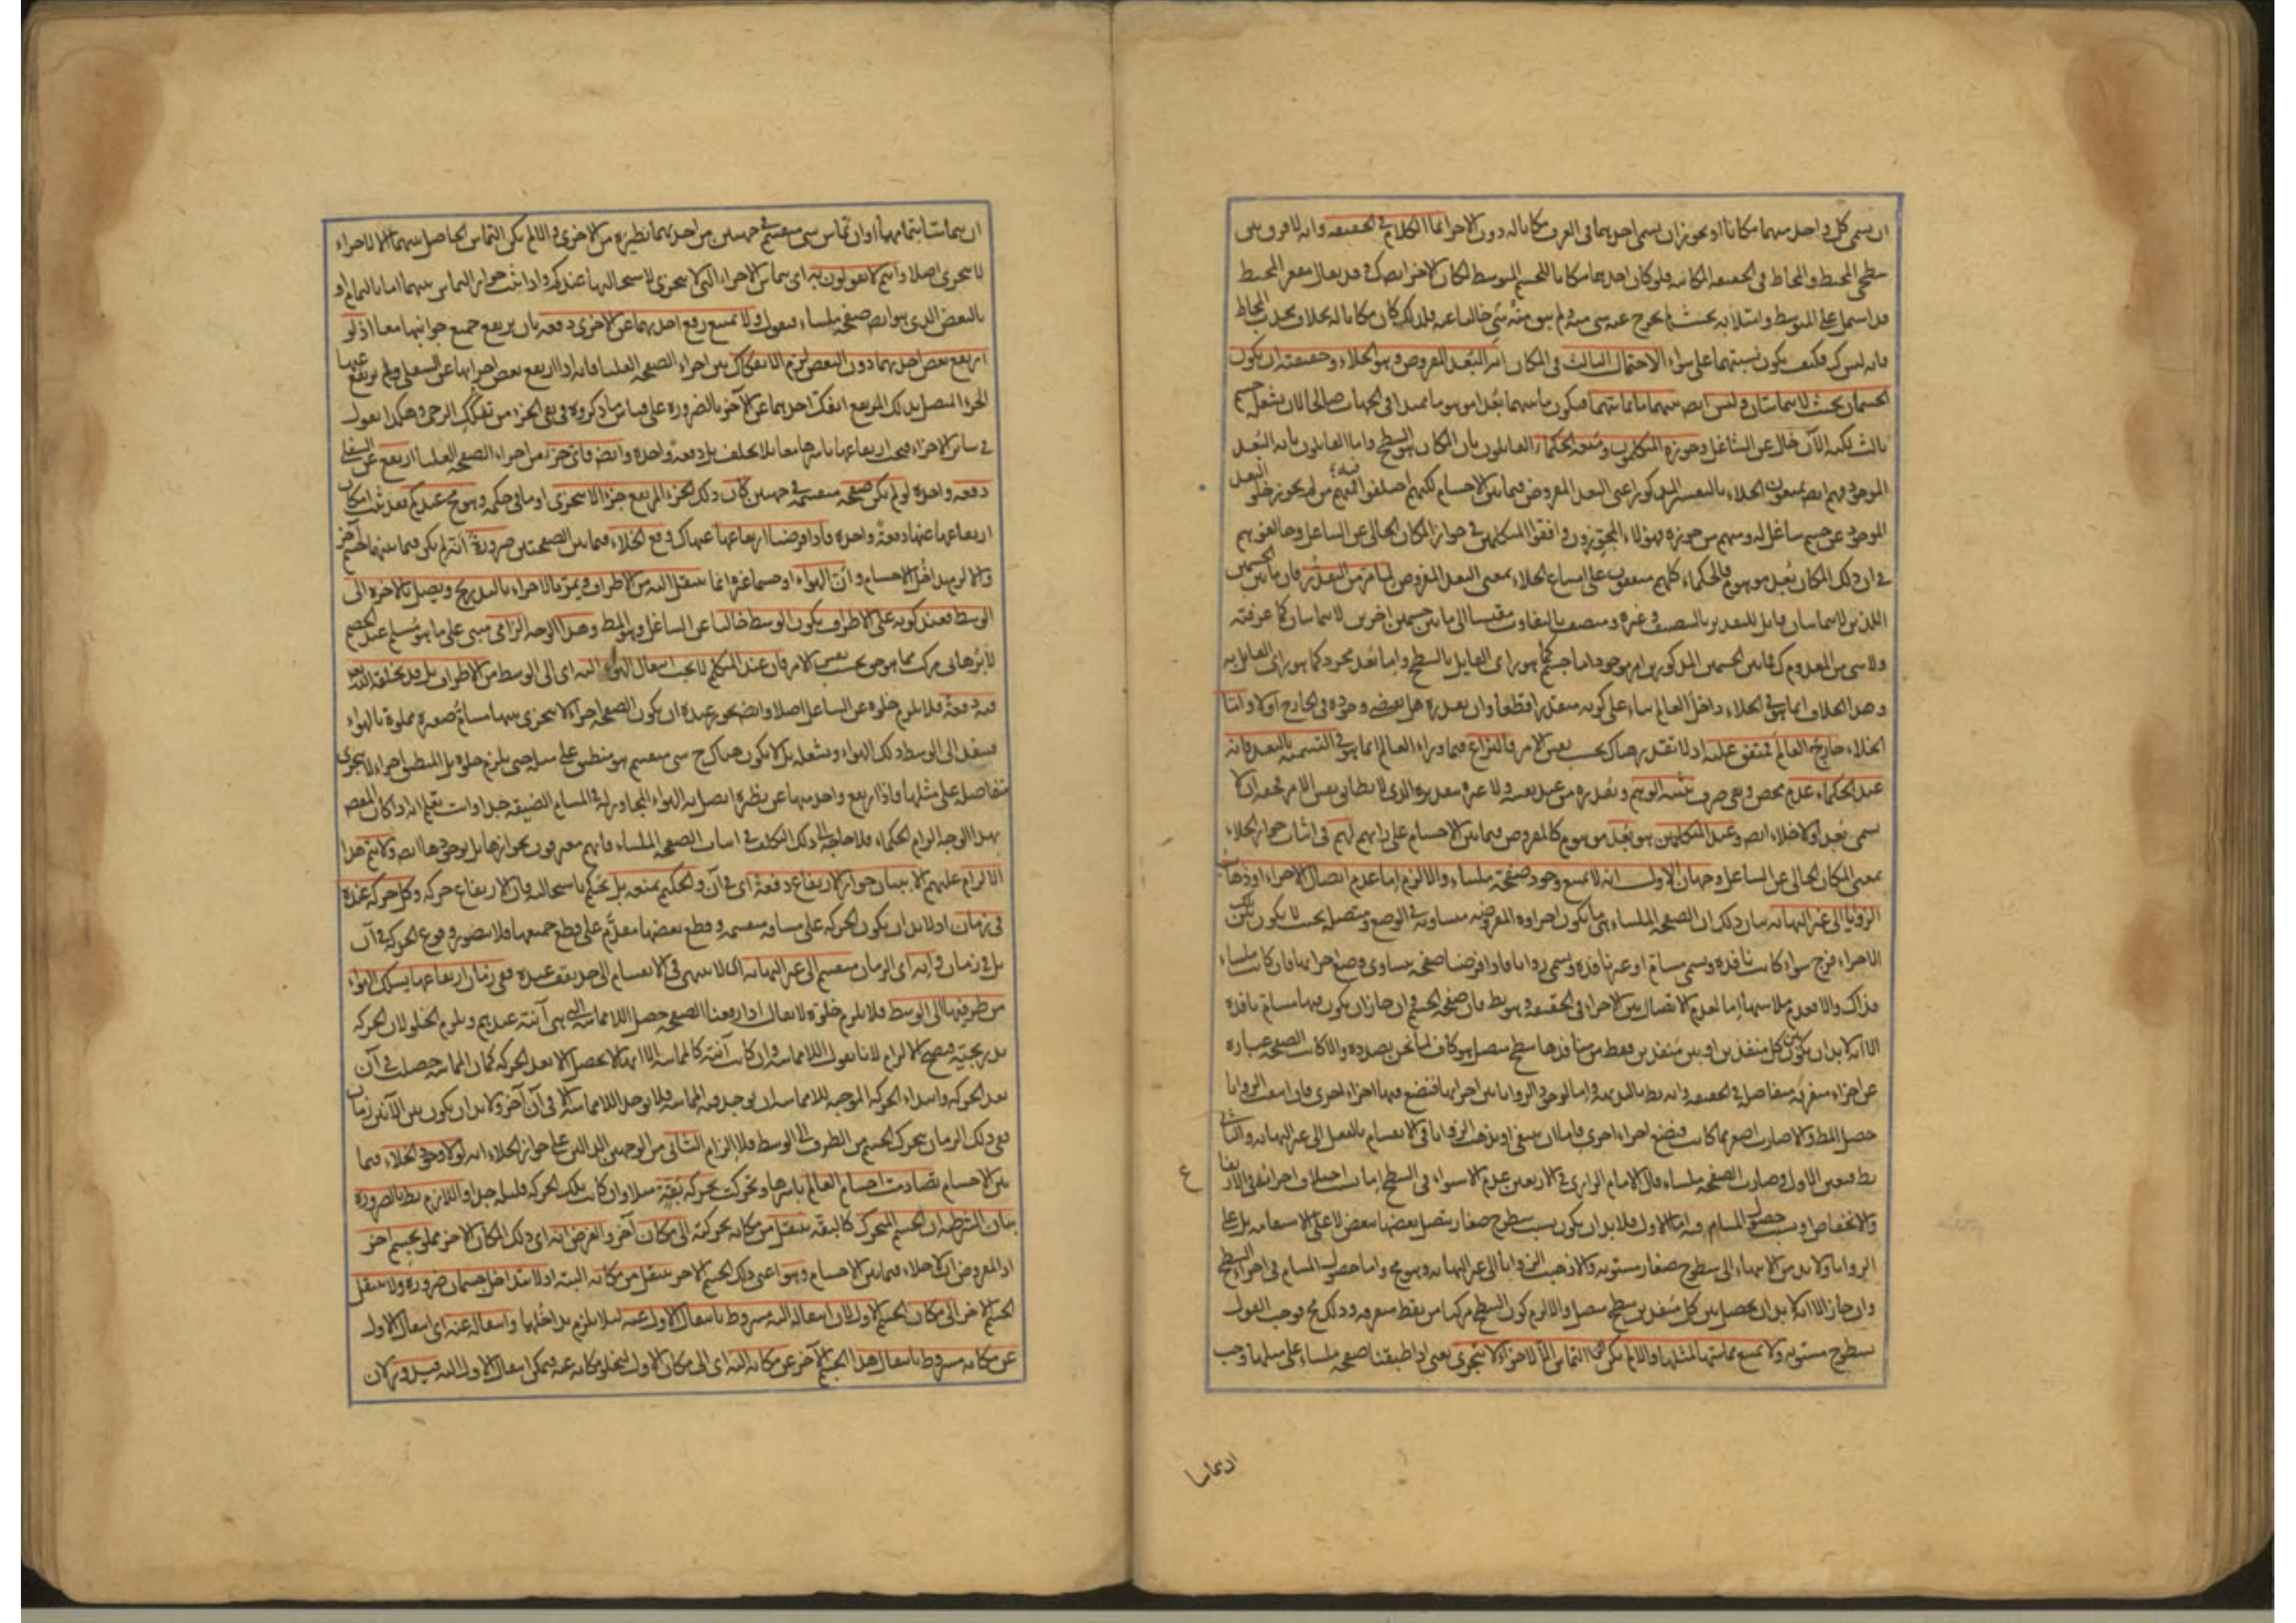 ان يسمى كل واحد منهما مكانا او يجوز ان يسمى احدهما فى العرف مكانا له دون الاخر انما الكلام فى الحقيقة وانه لا فرق بين
سطحى المحيط والمحاط فى الحقيقة المكانية فلو كان احدهما مكانا للجسم المتوسط لكان الاخر ايضا كك قد يقال مقعر المحيط
قد اشتمل على المتوسط وامتلأ به بحيث لم يخرج عنه شى منه ولم يبق منه شى خاليا عنه فلذلك كان مكانا له بخلاف محدب المحاط
فانه ليس كك فكيف يكون نسبتهما على سواء الاحتمال الثالث فى المكان انه البعد المفروض وهو الخلاء وحقيقته ان يكون
الجسمان بحيث لا يتماسان وليس ايضا بينهما ما يماسهما فيكون ما بينهما بعدا موهوما ممتدا فى الجهات صالحا لان يشغله جسم
ثالث لكنه الآن خال عن الشاغل وجوزه المتكلمون ومنعه الحكماء القائلون بان المكان هو السطح واما القائلون بانه البعد
الموجود فهم ايضا يمنعون الخلاء بالتفسير المذكور اعنى البعد المفروض فيما بين الاجسام لكنهم اختلفوا فمنهم من لم يجوز خلو البعد
الموجود عن جسم شاغل له ومنهم من جوزه فهؤلاء المجوزون وافقوا المتكلمين فى جواز المكان الخالى عن الشاغل وخالفوهم
فى ان ذلك المكان بعد موهوم فالحكماء كلهم متفقون على امتناع الخلاء بمعنى البعد المفروض لما مر من التقدر فان ما بين الجسمين
اللذين لا يتماسان قابل للتقدير بالتنصيف وغيره ومتصف بالتفاوت مقيسا الى ما بين جسمين اخرين لا يتماسان كما عرفته
ولا شى من المعدوم كك فما بين الجسمين المذكورين امر موجود اما جسم كما هو راى القايل بالسطح واما بعد مجرد كما هو راى القائل به
وهذا الخلاف انما هو فى الخلاء داخل العالم بناء على كونه متقدرا قطعا وان تقدره هل يقتضى وجوده فى الخارج اولا واما
الخلاء خارج العالم فمتفق عليه اذ لا تقدر هناك بحسب نفس الامر فالنزاع فيما وراء العالم انما هو فى التسمية بالبعد فانه
عند الحكماء عدم محض ونفى صرف يثبته الوهم ويقدره من عند نفسه ولا عبرة بتقديره الذى لا يطابق نفس الامر فحقه ان لا
يسمى بعدا ولا خلاء ايضا وعند المتكلمين هو بعد موهوم كالمفروض فيما بين الاجسام على رايهم لهم فى اثبات جواز الخلاء
بمعنى المكان الخالى عن الشاغل وجهان الاول انه لا يمتنع وجود صفحة ملساء والا لزم اما عدم اتصال الاجزاء او ذهاب
الزوايا الى غير النهاية بيان ذلك ان الصفحة الملساء هى ما يكون اجزاؤه المفروضة متساوية فى الوضع ومتصلة بحيث لا يكون بين تلك
الاجزاء فرج سواء كانت نافذة وتسمى مسام او غير نافذة وتسمى زوايا فاذا فرضنا صفحة يتساوى وضع اجزائها فان كانت ملساء
فذاك والا فعدم ملاستها اما لعدم الاتصال بين الاجزاء فى الحقيقة وهو بط فان صفحة الجسم وان جاز ان يكون فيها مسام نافذة
الا انه لا بد ان يكون بين كل منفذين او بين منفذين فقط من منافذها سطح متصل هو كاف لما نحن بصدده والا كانت الصفحة عبارة
عن اجزاء متفرقة متفاصلة فى الحقيقة وانه بط بالبديهة واما لوجود الزوايا بين اجزائها فنضع فيها اجزاء اخرى فان امتلأت الزوايا
حصل المط والا صارت اصغر مما كانت فنضع اجزاء اخرى فاما ان ينتفى او يذهب الزوايا فى الانقسام بالفعل الى غير النهاية والثانى
بط فتعين الاول وصارت الصفحة ملساء قال الامام الرازى فى الاربعين عدم الاستواء فى السطح اما باختلاف اجزائه فى الارتفاع
والانخفاض او بسبب حصول المسام فيه اما الاول فلا بد ان يكون بسبب سطوح صغار يتصل بعضها ببعض لا على الاستقامة بل على
الزوايا ولا بد من الانتهاء الى سطوح صغار مستوية والا ذهبت الزوايا الى غير النهاية وهو مح واما حصول المسام فى اجزاء السطح
وان جاز الا انه لا بد ان يحصل بين كل منفذين سطح متصل والا لزم كون السطح مركبا من نقط متفرقة وذلك مح فوجب القول
بسطوح مستوية ولا يمتنع مماستها لمثلها والا لم يكن التماس الا لاجزاء لا يتجزى يعنى اذا طبقنا صفحة ملساء على مثلها وجب
ان يتماسا
ان يتماسا بتمامهما او ان يماس شى منقسم فى جهتين من احدهما نظيره من الاخرى والا لم يكن التماس الحاصل بينهما الا لاجزاء
لا يتجزى اصلا وانتم لا تقولون به اى بتماس الاجزاء التى لا يتجزى لاستحالتها عندكم واذا ثبت جواز التماس بينهما اما بالتمام او
بالبعض الذى هو ايضا صفحة ملساء فنقول ولا يمتنع رفع احدهما عن الاخرى دفعة بان يرتفع جميع جوانبها معا اذ لو
ارتفع بعض احدهما دون البعض لزم الانفكاك بين اجزاء الصفحة العليا فانه اذا ارتفع بعض اجزائها عن السفلى ولم يرتفع عنها
الجزء المتصل بذلك المرتفع انفك احدهما عن الآخر بالضرورة على قياس ما ذكروه فى نفى الجزء من تفكك الرحى وهكذا نقول
فى سائر الاجزاء فيجب ارتفاعها باسرها معا بلا تخلف بل دفعة واحدة وايضا فاى جزء من اجزاء الصفحة العليا ارتفع عن السفلى
دفعة واحدة لو لم يكن صفحة منقسمة فى جهتين كان ذلك الجزء المرتفع جزءا لا يتجزى او ما فى حكمه وهو مح عندكم فقد ثبت امكان
ارتفاعها عنها دفعة واحدة فاذا فرضنا ارتفاعها عنها كك وقع الخلاء فيما بين الصفحتين ضرورة انه لم يكن فيما بينهما جسم آخر
والا لزم تداخل الاجسام وان الهواء او جسما غيره انما ينتقل اليه من الاطراف ويمر بالاجزاء بالتدريج ويصل بالاخرة الى
الوسط فعند كونه على الاطراف يكون الوسط خاليا عن الشاغل وهو المط وهذا الوجه الزامى مبنى على ما هو مسلم عند الخصم
لا برهانى مركب مما هو حق بحسب نفس الامر فان عند المتكلم لا يجب انتقال الهواء اليه اى الى الوسط من الاطراف بل قد يخلقه الله
فيه دفعة فلا يلزم خلوه عن الشاغل اصلا وايضا يجوز عنده ان يكون الصفحة اجزاء لا يتجزى بينها مسام صغيرة مملوة بالهواء
فينتقل الى الوسط ذلك الهواء ويشغله بل لا يكون هناك ح شى منقسم هو منطبق على مثله حتى يلزم خلوه بل المنطبق اجزاء لا يتجزى
متفاصلة على مثلها واذا ارتفع واحد منها عن نظيره اتصل به الهواء المجاور له فى المسام الضيقة جدا وانت تعلم انه اذا كان المقص
بهذا الوجه الزام الحكماء فلا حاجة الى ذلك التكلف فى اثبات الصفحة الملساء فانهم معترفون بجوازها بل بوجودها ايضا ولا يتم هذا
الالزام عليهم الا ببيان جواز الارتفاع دفعة اى فى آن والحكيم يمنعه بل يحكم باستحالته فان الارتفاع حركة وكل حركة عنده
فى زمان اذ لا بد ان يكون الحركة على مسافة منقسمة وقطع بعضها مقدم على قطع جميعها فلا يتصور وقوع الحركة فى آن
بل فى زمان وانه اى الزمان منقسم الى غير النهاية اى لا ينتهى فى الانقسام الى حد يقف عنده ففى زمان ارتفاعها يسلك الهواء
من طرفيها الى الوسط فلا يلزم خلوه لا يقال اذا رفعنا الصفحة حصل اللامماسة التى هى آنية عندهم ويلزم الخلو لان الحركة
تدريجية فيصح الالزام لانا نقول اللامماسة وان كانت آنية كالمماسة الا انها لا يحصل الا بعد الحركة كما ان المماسة حصلت فى آن
بعد الحركة وابتداء الحركة الموجبة للامماسة ان يوجد فيه المماسة فلا توجد اللامماسة الا فى آن آخر ولا بد ان يكون بين الآنين زمان
ففى ذلك الزمان يتحرك الجسم من الطرف الى الوسط فلا الزام الثانى من الوجهين الدالين على جواز الخلاء انه لولا وجود الخلاء فيما
بين الاجسام تصادمت اجسام العالم باسرها وتحركت بحركة بقة مثلا وان كانت تلك الحركة قليلة جدا واللازم بط بالضرورة
بيان الشرطية ان الجسم المتحرك كالبقة ينتقل من مكانه بحركته الى مكان آخر والفرض انه اى ذلك المكان الاخر مملو بجسم اخر
اذ المفروض ان لا خلاء فيما بين الاجسام وهو اعنى ذلك الجسم الاخر ينتقل من مكانه البتة اذ لا يتداخل جسمان ضرورة ولا ينتقل
الجسم الاخر الى مكان الجسم الاول لان انتقاله اليه مشروط بانتقال الاول عنه لئلا يلزم تداخلهما وانتقاله عنه اى انتقال الاول
عن مكانه مشروط بانتقال هذا الجسم الآخر عن مكانه اليه اى الى مكان الاول ليخلو مكانه عنه فيمكن انتقال الاول اليه فيدور لان